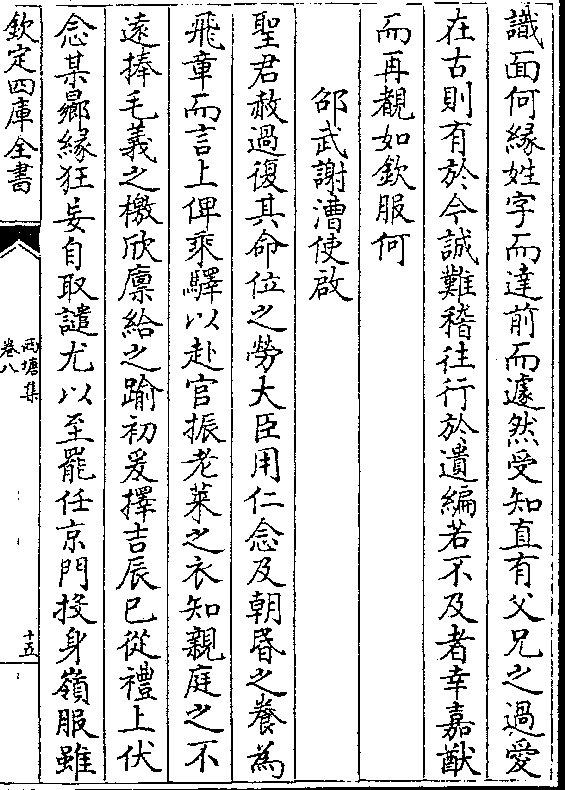 識面何縁姓字而達前而遽然受知直有父兄之過愛
在古則有於今誠難稽往行於遺編若不及者幸嘉猷
而再覩如欽服何
邵武謝漕使啟
聖君赦過復其命位之勞大臣用仁念及朝昏之養為
飛章而言上俾乘驛以赴官振老萊之衣知親庭之不
逺捧毛義之檄欣廪給之踰初爰擇吉辰已從禮上伏
念某曏縁狂妄自取譴尤以至罷任京門投身嶺服雖
欽定四庫全書
西塘集
卷八
十五